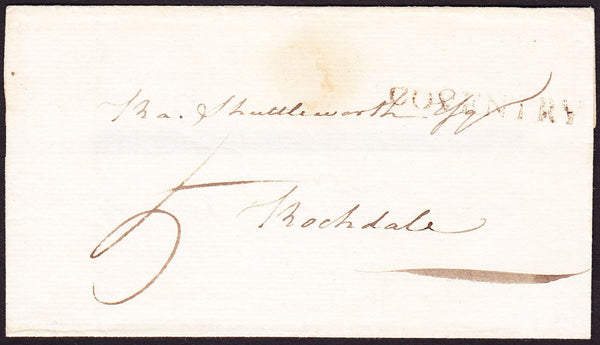 COVENTRY
Ra. Shuttleworth Esqr
5
Rochdale